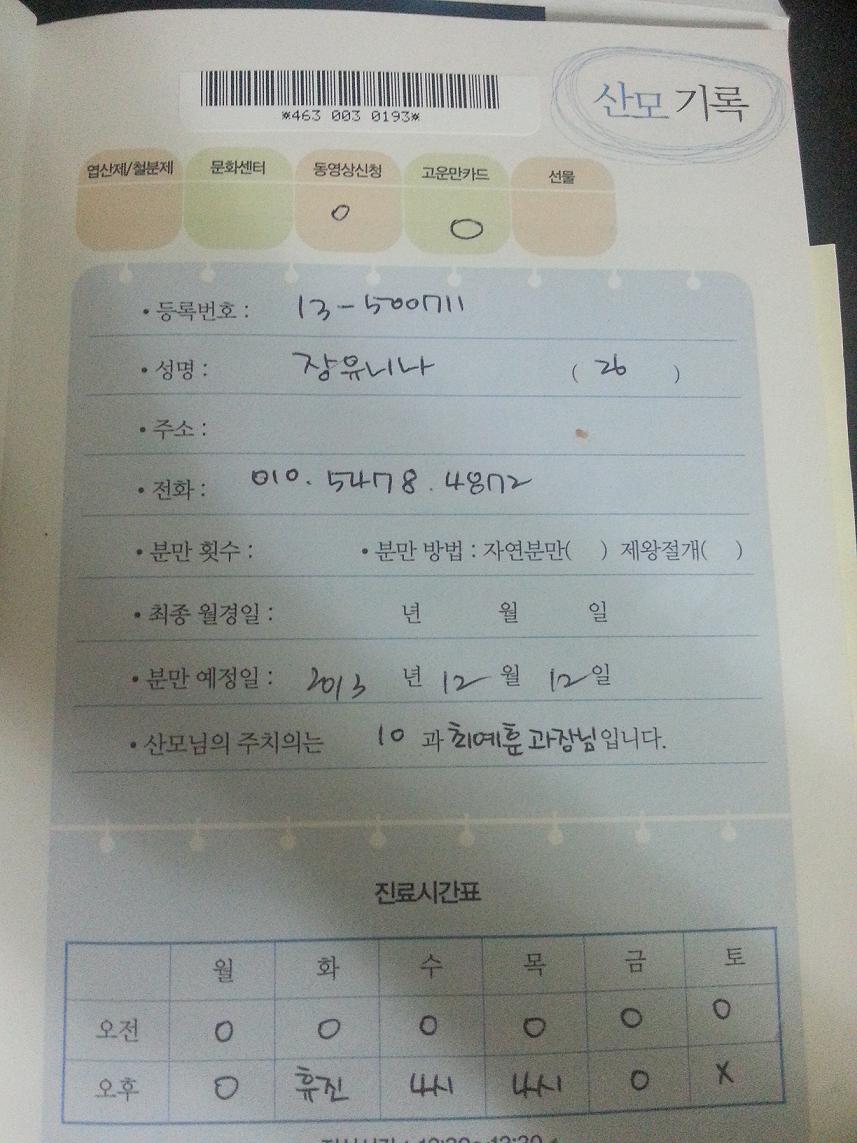 *463 003 0193*
산모 기록
엽산제/철분제 문화센터 동영상신청 고운맘카드 선물
O O
• 등록번호 : 13-500711
• 성명 : 장유니나 ( 26 )
• 주소 :
• 전화 : 010. 5478. 4872
• 분만 횟수 : • 분만 방법 : 자연분만( ) 제왕절개( )
• 최종 월경일 : 년 월 일
• 분만 예정일 : 2013 년 12 월 12 일
• 산모님의 주치의는 10 과 최예훈 과장님 입니다.
진료시간표
월 화 수 목 금 토
오전 O O O O O O
오후 O 휴진 4시 4시 O X